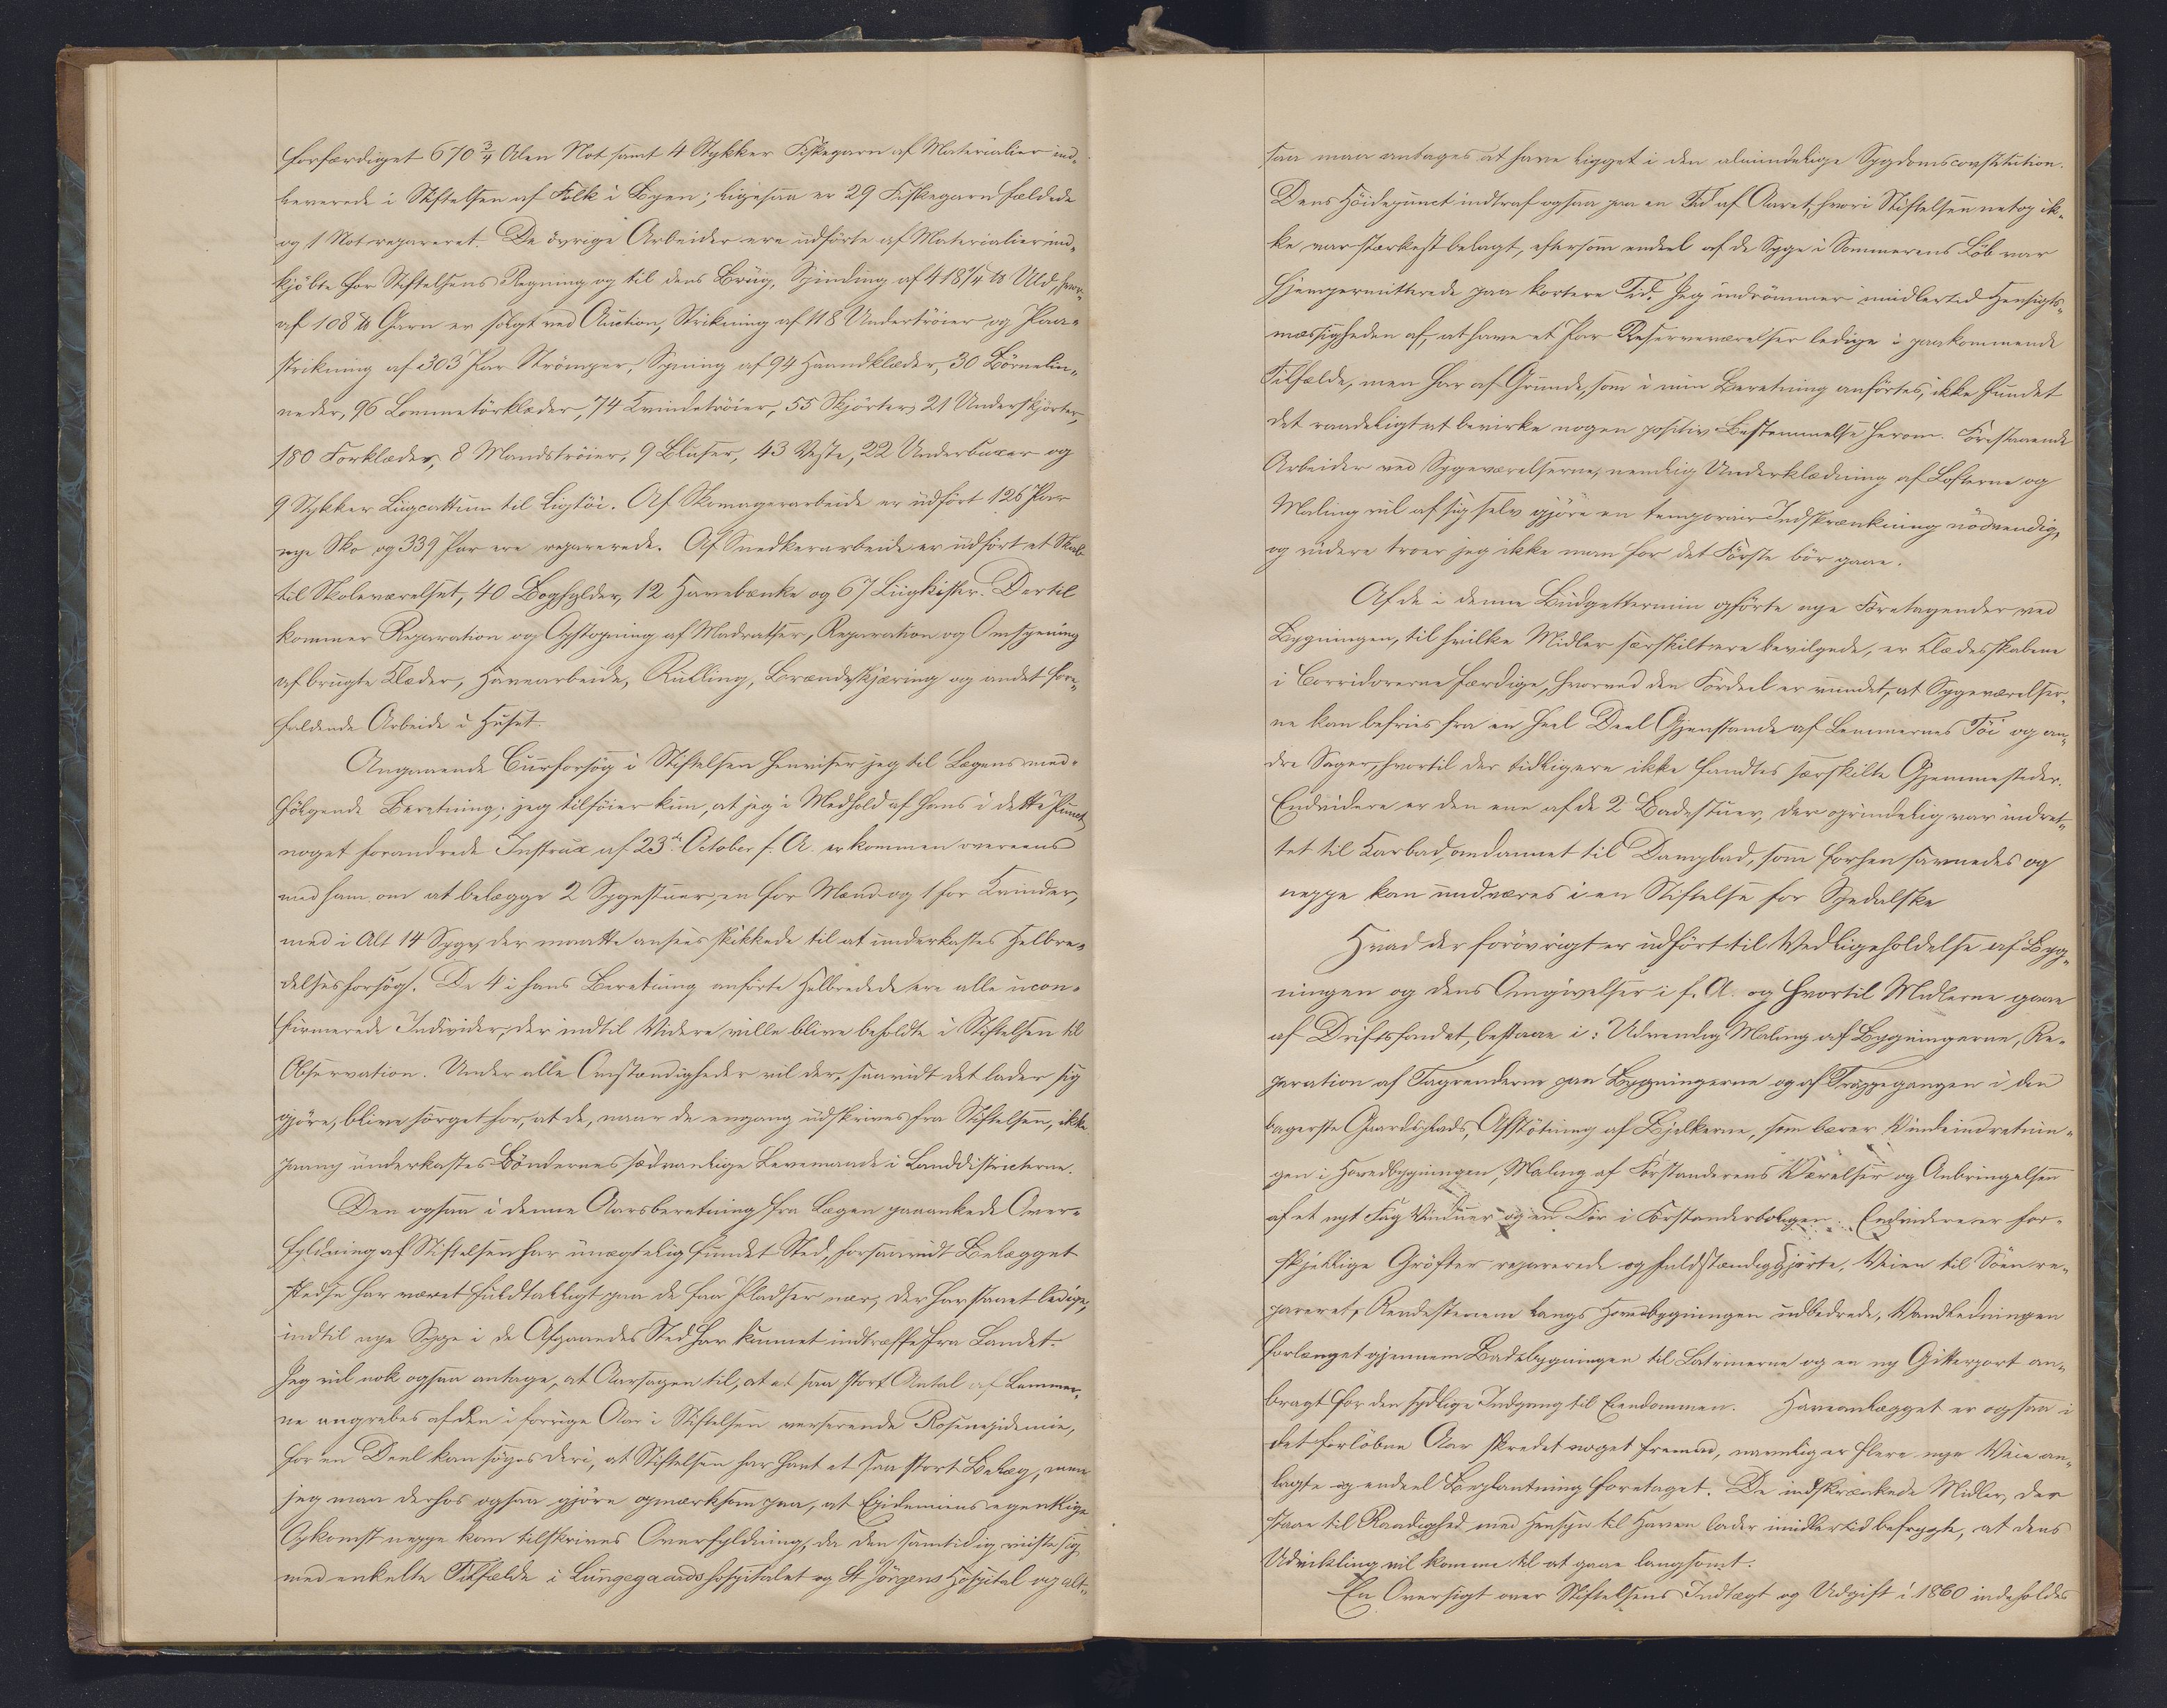 forfærdiget 670 3/4 Alen Not samt 4 Stykker Fiskegarn af Materialier ind-
leverede i Stiftelsen af Folk i Byen; ligesaa er 29 Fiskegarn fældede
og 1 Not repareret. De övrige Arbeider ere udförte af Materialier ind-
kjöbte for Stiftelsens Regning og til dens Brug, Spinding af 418 1/4 ℔ Uld, hvor-
af 108 ℔ Garn er solgt ved Auction, Strikning af 118 Undertröier og Paa-
strikning af 303 Par Strömper, Syning af 94 Haandklæder, 30 Börnelin-
neder, 96 Lommetörklæder, 74 Kvindetröier, 55 Skjörter, 21 Underskjörter,
180 Forklæder, 8 Mandströier, 9 Bluser, 43 Veste, 22 Underbuxer og
9 Stykker Liigcattun til Ligtöi. Af Skomagerarbeide er udfört 126 Par
nye Sko og 339 Par ere reparerede. Af Snedkerarbeide er udfört et Skab
til Skoleværelset, 40 Boghylder, 12 Havebænke og 67 Liigkister. Dertil
kommer Reparation og Opstopning af Madratser, Reparation og Omsyening
af brugte Klæder, Havearbeide, Rulling, Brændeskjæring og andet fore-
faldende Arbeide i Huset.
Angaaende Cuurforsög i Stiftelsen henviser jeg til Lægens med-
fölgende Beretning; jeg tilföier kun, at jeg i Medhold af hans i dette Punct
noget forandrede Instrux af 23de October f. A. er kommen overeens
med ham om at belægge 2 Sygestuer, en for Mænd og 1 for Kvinder,
med i Alt 14 Syge, der maatte ansees skikkede til at underkastes Helbre-
delsesforsög. De 4 i hans Beretning anförte Helbredede ere alle ucon-
firmerede Individer, der indtil Videre ville blive beholdte i Stiftelsen til
Observation. Under alle Omstændigheder vil der, saavidt det lader sig
gjöre, blive sörget for, at de, naar de engang udskrives fra Stiftelsen, ikke
paany underkastes Böndernes sædvanlige Levemaade i Landdistricterne.
Den ogsaa i denne Aarsberetning fra Lægen paaankede Over-
fyldning af Stiftelsen har unægtelig fundet Sted, forsaavidt Belægget
stedse har været fuldtalligt paa de faa Pladser nær, der har staaet ledige,
indtil nye Syge i de Afgaaendes Sted har kunnet indtræffe fra Landet.
Jeg vil nok ogsaa antage, at Aarsagen til, at et saa stort Antal af Lemmer-
ne angrebes af den i forrige Aar i Stiftelsen verserende Rosenepidemie,
for en Deel kan söges deri, at Stiftelsen har havt et saa stort Belæg, men
jeg maa derhos ogsaa gjöre opmærksom paa, at Epidemiens egentlige
Opkomst neppe kan tilskrives Overfyldning, da den samtidig viiste sig
med enkelte Tilfælde i Lungegaardshospitalet og St. Jörgens Hospital og alt-
saa maa antages at have ligget i den almindelige Sygdomsconstitution.
Dens Höidepunct indtraf ogsaa paa en Tid af Aaret, hvori Stiftelsen netop ik-
ke var stærkest belagt, eftersom endeel af de Syge i Sommerens Löb var
hjempermitterede paa kortere Tid. Jeg indrömmer imidlertid Hensigts-
mæssigheden af, at have et Par Reserveværelser ledige i paakommende
Tilfælde, men har af Grunde, som i min Beretning anförtes, ikke fundet
det raadeligt at bevirke nogen positiv Bestemmelse herom. Forestaaende
Arbeider ved Sygeværelserne, nemlig Underklædning af Lofterne og
Maling vil af sig selv gjöre en temporair Indskrænkning nödvendig,
og videre troer jeg ikke man for det Förste bör gaae.
Af de i denne Budgettermin opförte nye Foretagender ved
Bygningen, til hvilke Midler særskilt vare bevilgede, er Klædesskabene
i Corridorerne færdige, hvorved den Fordeel er vundet, at Sygeværelser-
ne kan befries fra en heel Deel Gjenstande af Lemmernes Töi og an-
dre Sager, hvortil der tidligere ikke fandtes særskilte Gjemmesteder.
Endvidere er den ene af de 2 Badestuer, der oprindelig var indret-
tet til Karbad, omdannet til Dampbad, som forhen savnedes og
neppe kan undværes i en Stiftelse for Spedalske
Hvad der forövrigt er udfört til Vedligeholdelse af Byg-
ningen og dens Omgivelser i f. A. og hvortil Midlerne gaae
af Driftsfondet, bestaae i: Udvendig Maling af Bygningerne, Re-
paration af Tagrenderne paa Bygningerne og af Trappegangen i den
bagerste Gaardsplads, Afstötning af Bjelkerne, som bærer Vindeindretnin-
gen i Hovedbygningen, Maling af Forstanderens Værelser og Anbringelsen
af et nyt Fag Vinduer og en Dör i Forstanderboligen. Endvidere er for-
skjellige Gröfter reparerede og fuldstændiggjorte, Veien til Söen re-
pareret, Rendestenene langs Hovedbygningen udbedrede, Vandledningen
forlænget gjennem Badebygningen til Latrinerne og en ny Gitterport an-
bragt for den sydlige Indgang til Eiendommen. Haveanlægget er ogsaa i
det forlöbne Aar skredet noget fremad, navnlig er flere nye Veie an-
lagte og endeel Beplantning foretaget. De indskrænkede Midler, der
staae til Raadighed med Hensyn til Haven lader imidlertid befrygte, at dens
Udvikling vil komme til at gaae langsomt.
En Oversigt over Stiftelsens Indtægt og Udgift i 1860 indeholdes